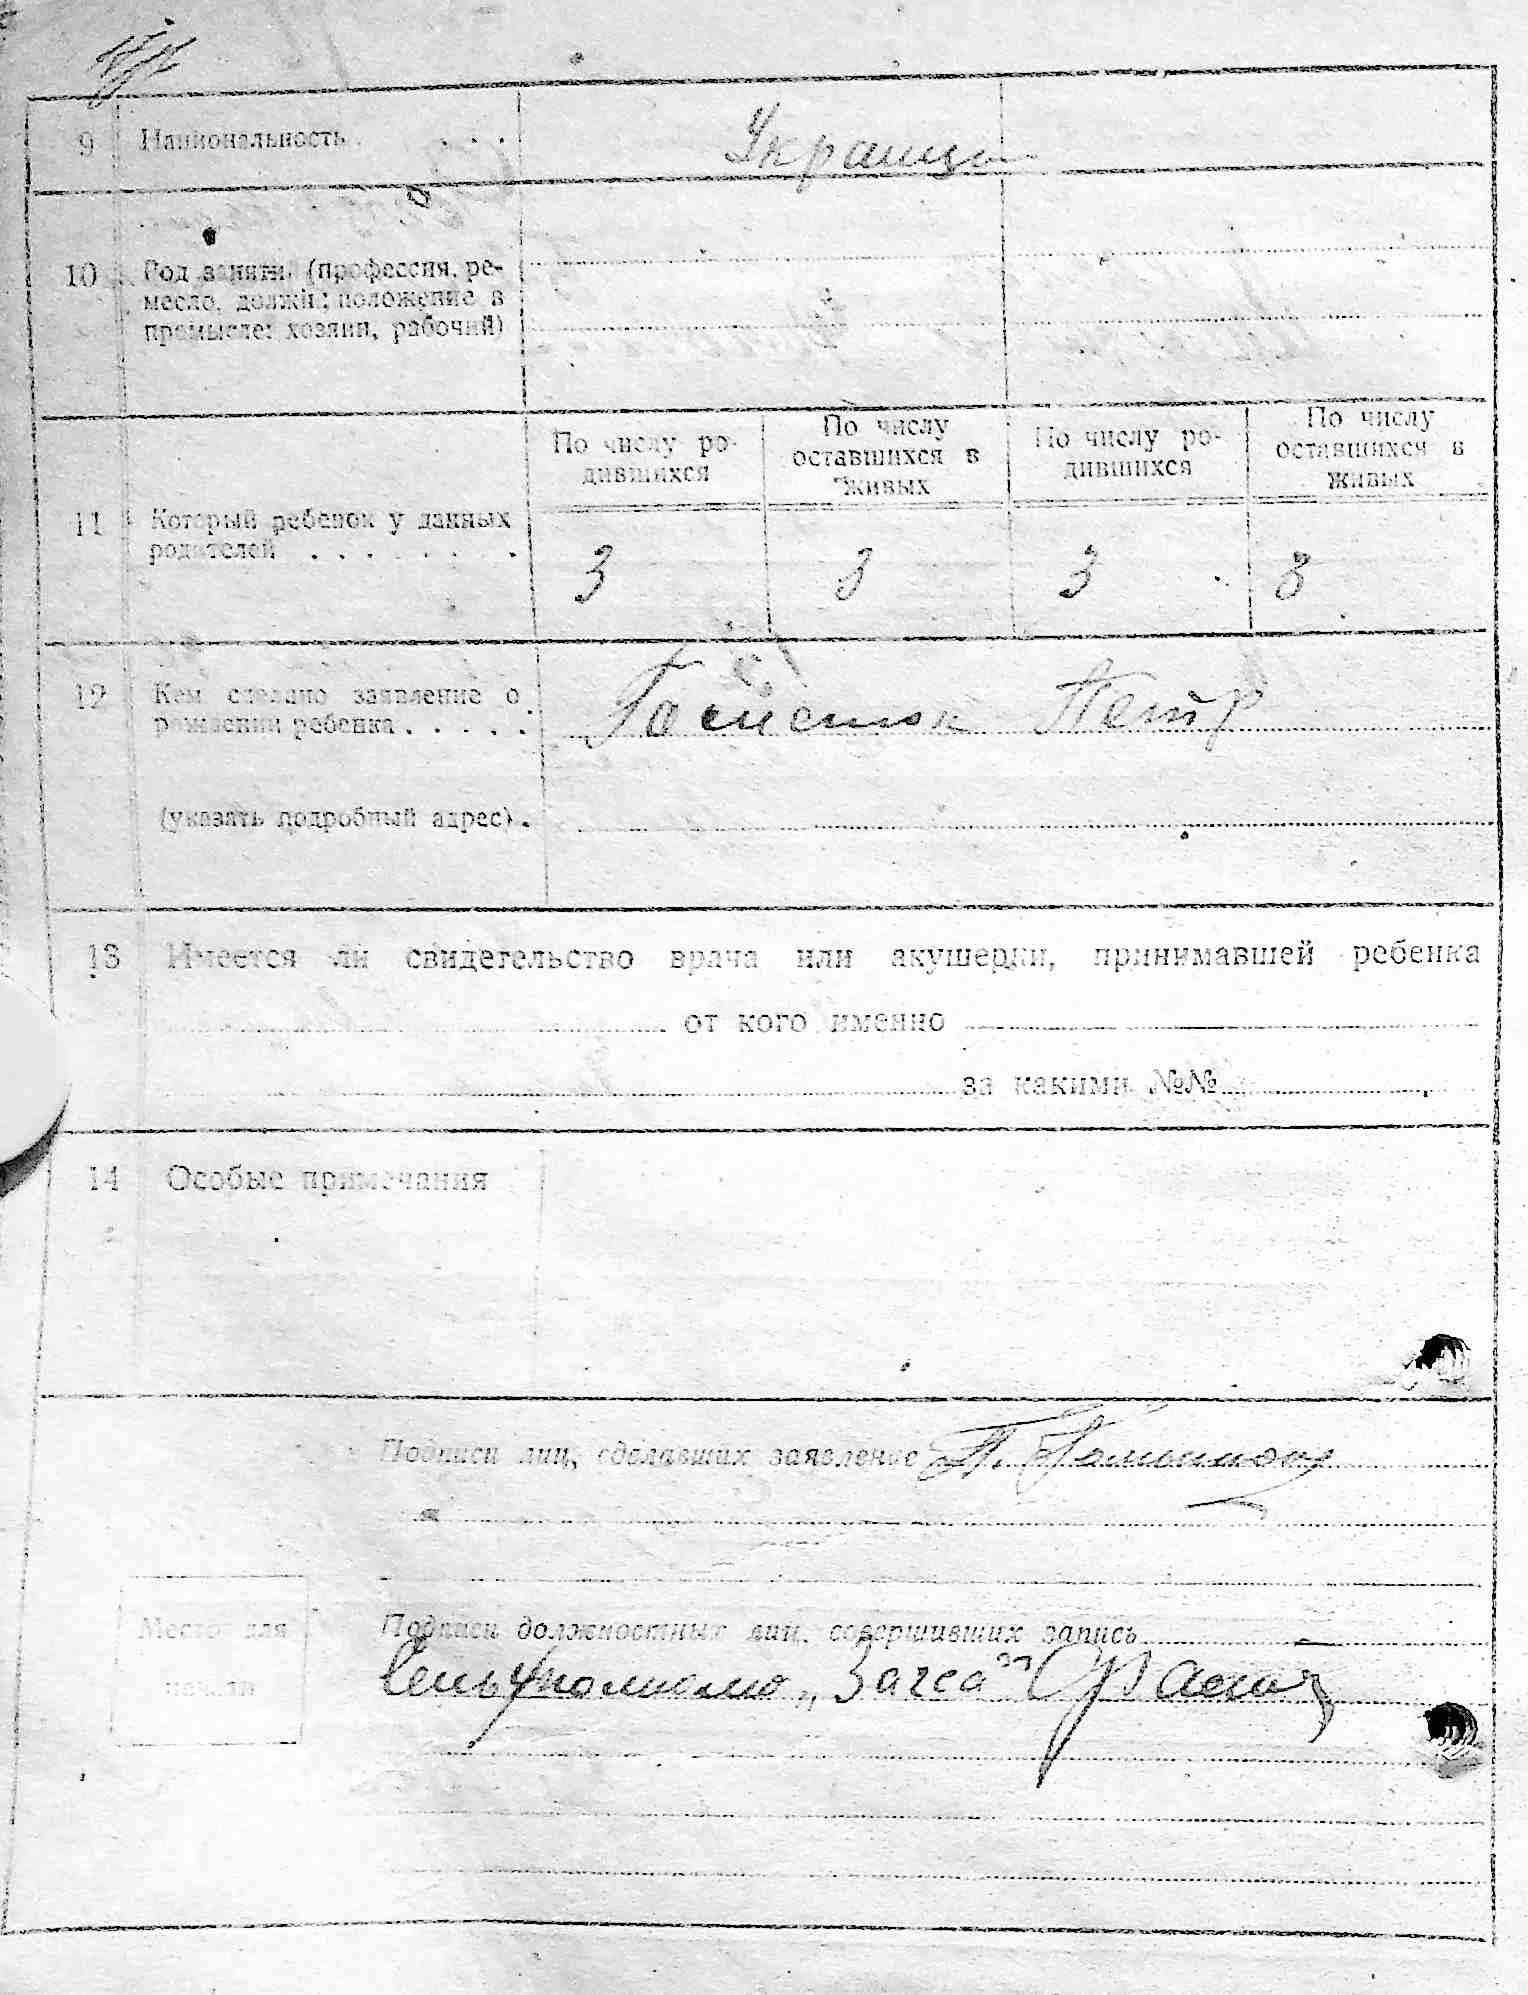 9 Национальность . . . . Украинцы
10 Род занятий (профессия, ре-
месло, должн.; положение в
промысле: хозяин, рабочий)
По числу ро- По числу По числу ро- По числу
дившихся оставшихся в дившихся оставшихся в
живых живых
11 Который ребенок у данных
родителей . . . . . . . 3 3 3 3
12 Кем сделано заявление о
рождении ребенка . . . . . Петр
(указать подробный адрес) .
13 Имеется ли свидетельство врача или акушерки, принимавшей ребенка
от кого именно
за какими №№
14 Особые примечания
Подписи лиц, сделавших заявление П.
Место для
печати
Подписи должностных лиц, совершивших запись
„Загса"